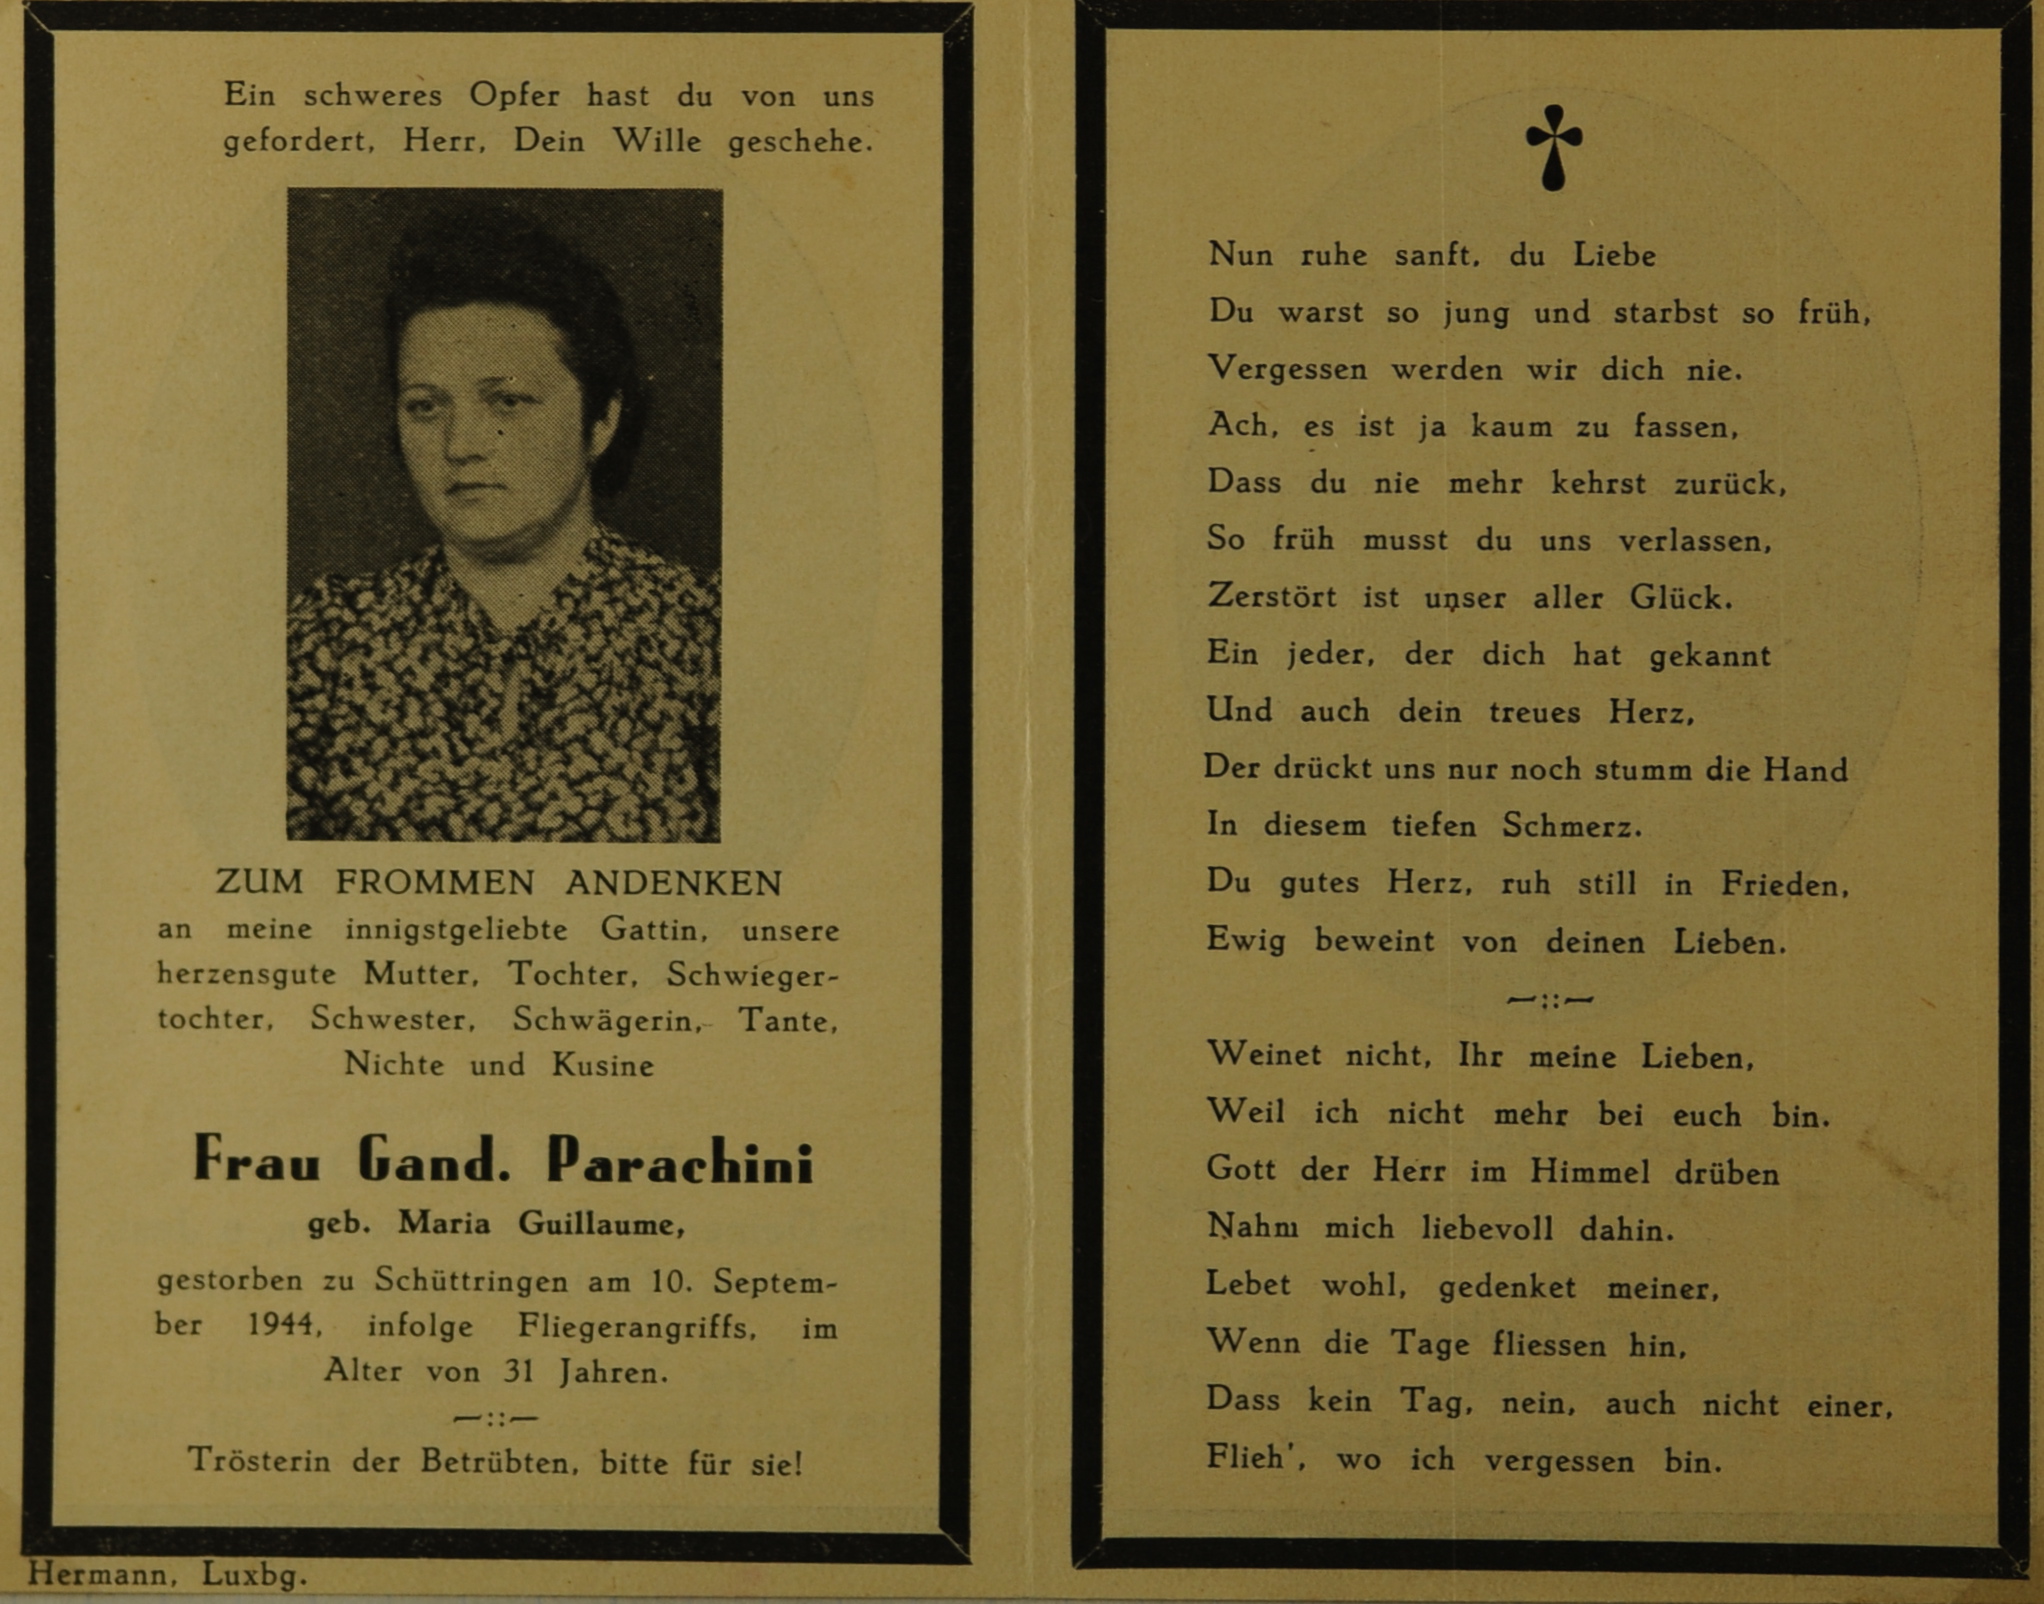 Ein schweres Opfer hast du von uns
gefordert, Herr, Dein Wille geschehe.
ZUM FROMMEN ANDENKEN
an meine innigstgeliebte Gattin, unsere
herzensgute Mutter, Tochter, Schwieger-
tochter, Schwester, Schwägerin, Tante,
Nichte und Kusine
Frau Gand. Parachini
geb. Maria Guillaume,
gestorben zu Schüttringen am 10. Septem-
ber 1944, infolge Fliegerangriffs, im
Alter von 31 Jahren.
—::—
Trösterin der Betrübten, bitte für sie!
Hermann, Luxbg.
Nun ruhe sanft, du Liebe
Du warst so jung und starbst so früh,
Vergessen werden wir dich nie.
Ach, es ist ja kaum zu fassen,
Dass du nie mehr kehrst zurück,
So früh musst du uns verlassen,
Zerstört ist unser aller Glück.
Ein jeder, der dich hat gekannt
Und auch dein treues Herz,
Der drückt uns nur noch stumm die Hand
In diesem tiefen Schmerz.
Du gutes Herz, ruh still in Frieden,
Ewig beweint von deinen Lieben.
—::—
Weinet nicht, Ihr meine Lieben,
Weil ich nicht mehr bei euch bin.
Gott der Herr im Himmel drüben
Nahm mich liebevoll dahin.
Lebet wohl, gedenket meiner,
Wenn die Tage fliessen hin,
Dass kein Tag, nein, auch nicht einer,
Flieh', wo ich vergessen bin.